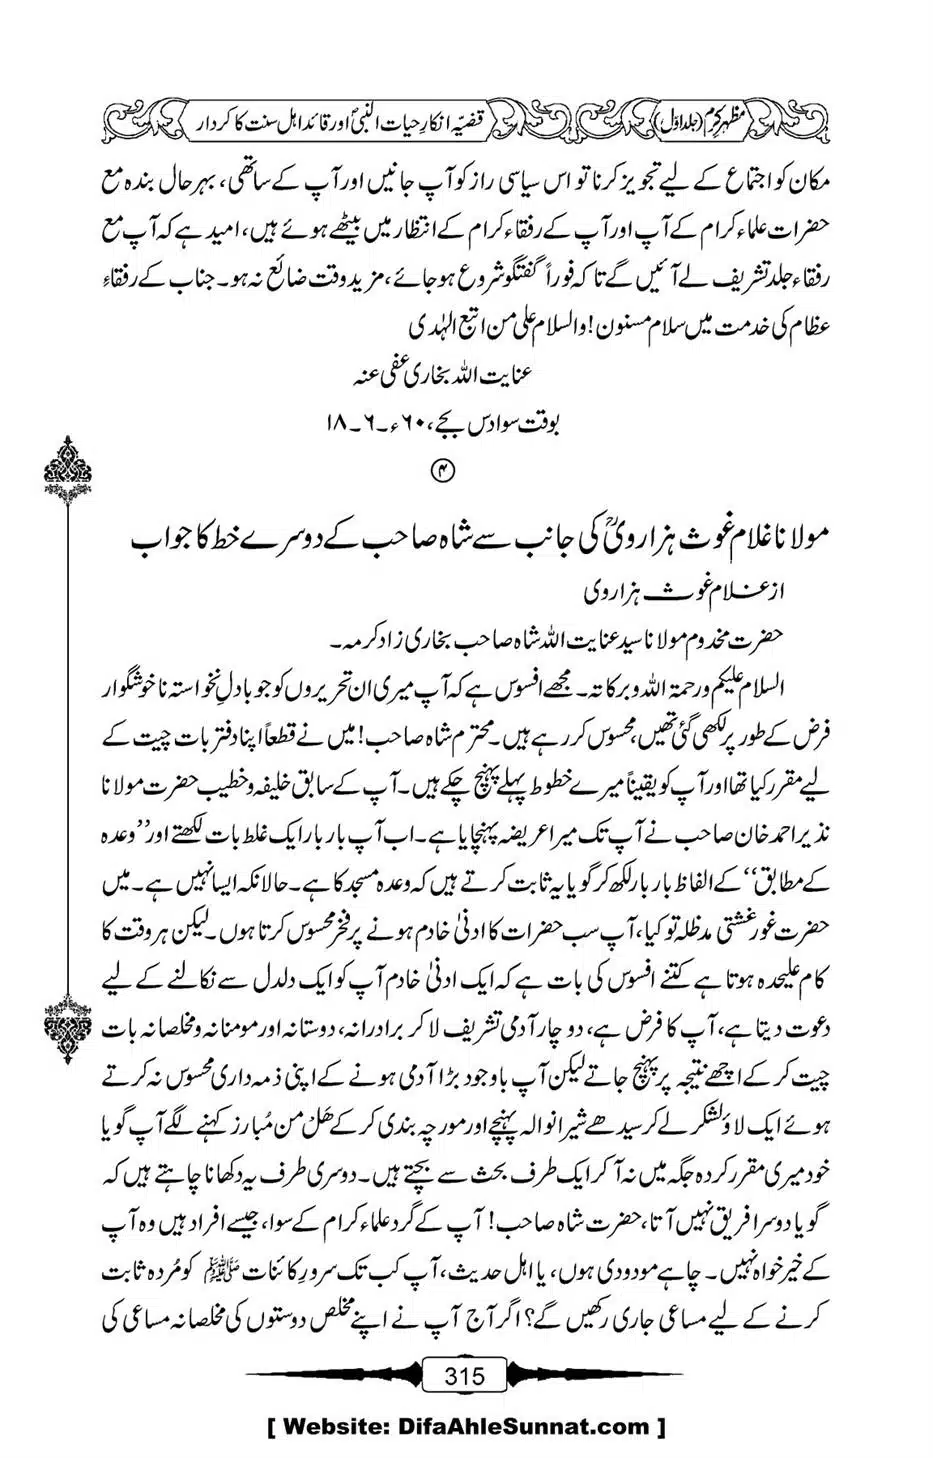 مظہرِ کرم (جلد اوّل) قضیّہ انکارِ حیات النبیؐ اور قائد اہل سنت کا کردار
مکان کو اجتماع کے لیے تجویز کرنا تو اس سیاسی راز کو آپ جانیں اور آپ کے ساتھی، بہرحال بندہ مع
حضرات علماء کرام کے آپ اور آپ کے رفقاء کرام کے انتظار میں بیٹھے ہوئے ہیں، امید ہے کہ آپ مع
رفقاء جلد تشریف لے آئیں گے تاکہ فوراً گفتگو شروع ہو جائے، مزید وقت ضائع نہ ہو۔ جناب کے رفقاءِ
عظام کی خدمت میں سلام مسنون! والسلام علی من اتبع الہٰدی
عنایت اللہ بخاری عفی عنہ
بوقت سوا دس بجے، ۶۰ء۔۶۔۱۸
۴
مولانا غلام غوث ہزارویؒ کی جانب سے شاہ صاحب کے دوسرے خط کا جواب
از غلام غوث ہزاروی
حضرت مخدوم مولانا سید عنایت اللہ شاہ صاحب بخاری زاد کرمہ۔
السلام علیکم ورحمۃ اللہ وبرکاتہ۔ مجھے افسوس ہے کہ آپ میری ان تحریروں کو جو بادلِ نخواستہ ناخوشگوار
فرض کے طور پر لکھی گئی تھیں، محسوس کر رہے ہیں۔ محترم شاہ صاحب! میں نے قطعاً اپنا دفتر بات چیت کے
لیے مقرر کیا تھا اور آپ کو یقیناً میرے خطوط پہلے پہنچ چکے ہیں۔ آپ کے سابق خلیفہ و خطیب حضرت مولانا
نذیر احمد خان صاحب نے آپ تک میرا عریضہ پہنچایا ہے۔ اب آپ بار بار ایک غلط بات لکھتے اور ’’وعدہ
کے مطابق‘‘ کے الفاظ بار بار لکھ کر گویا یہ ثابت کرتے ہیں کہ وعدہ مسجد کا ہے۔ حالانکہ ایسا نہیں ہے۔ میں
حضرت غور غشتی مدظلہ تو کیا، آپ سب حضرات کا ادنیٰ خادم ہونے پر فخر محسوس کرتا ہوں۔ لیکن ہر وقت کا
کام علیحدہ ہوتا ہے کتنے افسوس کی بات ہے کہ ایک ادنیٰ خادم آپ کو ایک دلدل سے نکالنے کے لیے
دعوت دیتا ہے، آپ کا فرض ہے، دو چار آدمی تشریف لا کر برادرانہ، دوستانہ اور مومنانہ و مخلصانہ بات
چیت کر کے اچھے نتیجہ پر پہنچ جاتے لیکن آپ باوجود بڑا آدمی ہونے کے اپنی ذمہ داری محسوس نہ کرتے
ہوئے ایک لاؤ لشکر لے کر سیدھے شیرانوالہ پہنچے اور مورچہ بندی کر کے ھَلْ من مُبارز کہنے لگے آپ گویا
خود میری مقرر کردہ جگہ میں نہ آ کر ایک طرف بحث سے بچتے ہیں۔ دوسری طرف یہ دکھانا چاہتے ہیں کہ
گویا دوسرا فریق نہیں آتا، حضرت شاہ صاحب! آپ کے گرد علماء کرام کے سوا، جیسے افراد ہیں وہ آپ
کے خیر خواہ نہیں۔ چاہے مودودی ہوں، یا اہل حدیث، آپ کب تک سرورِ کائنات ﷺ کو مُردہ ثابت
کرنے کے لیے مساعی جاری رکھیں گے؟ اگر آج آپ نے اپنے مخلص دوستوں کی مخلصانہ مساعی کی
315
[ Website: DifaAhleSunnat.com ]